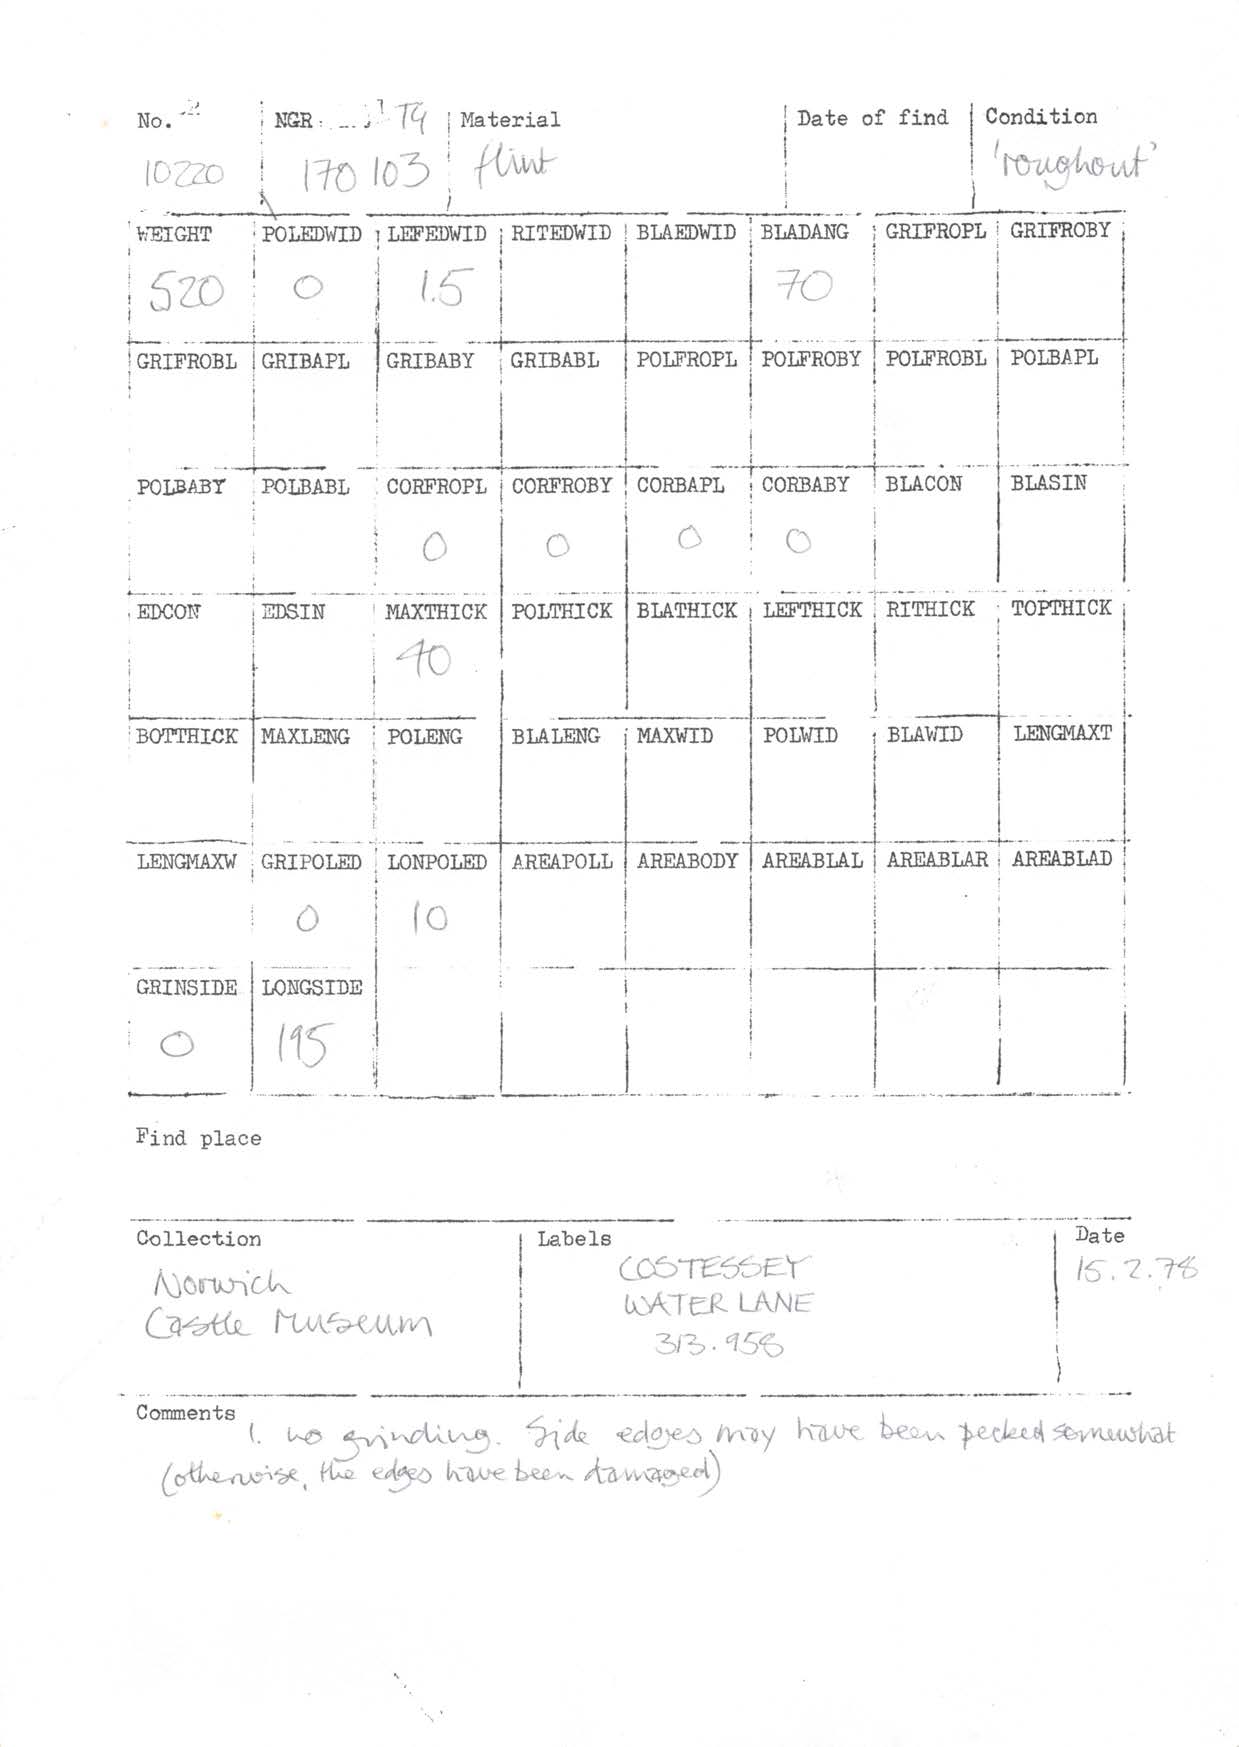 No. NGR TG Material Date of find Condition
10220 170 103 flint 'roughout'
WEIGHT POLEDWID LEFEDWID RITEDWID BLAEDWID BLADANG GRIFROPL GRIFROBY
520 0 1.5 70
GRIFROBL GRIBAPL GRIBABY GRIBABL POLFROPL POLFROBY POLFROBL POLBAPL
POLBABY POLBABL CORFROPL CORFROBY CORBAPL CORBABY BLACON BLASIN
0 0 0 0
EDCON EDSIN MAXTHICK POLTHICK BLATHICK LEFTHICK RITHICK TOPTHICK
40
BOTTHICK MAXLENG POLENG BLALENG MAXWID POLWID BLAWID LENGMAXT
LENGMAXW GRIPOLED LONPOLED AREAPOLL AREABODY AREABLAL AREABLAR AREABLAD
0 10
GRINSIDE LONGSIDE
0 195
Find place
Collection Labels Date
Norwich COSTESSEY 15.2.78
Castle Museum WATER LANE
313.958
Comments
1. no grinding. Side edges may have been pecked somewhat
(otherwise, the edges have been damaged)